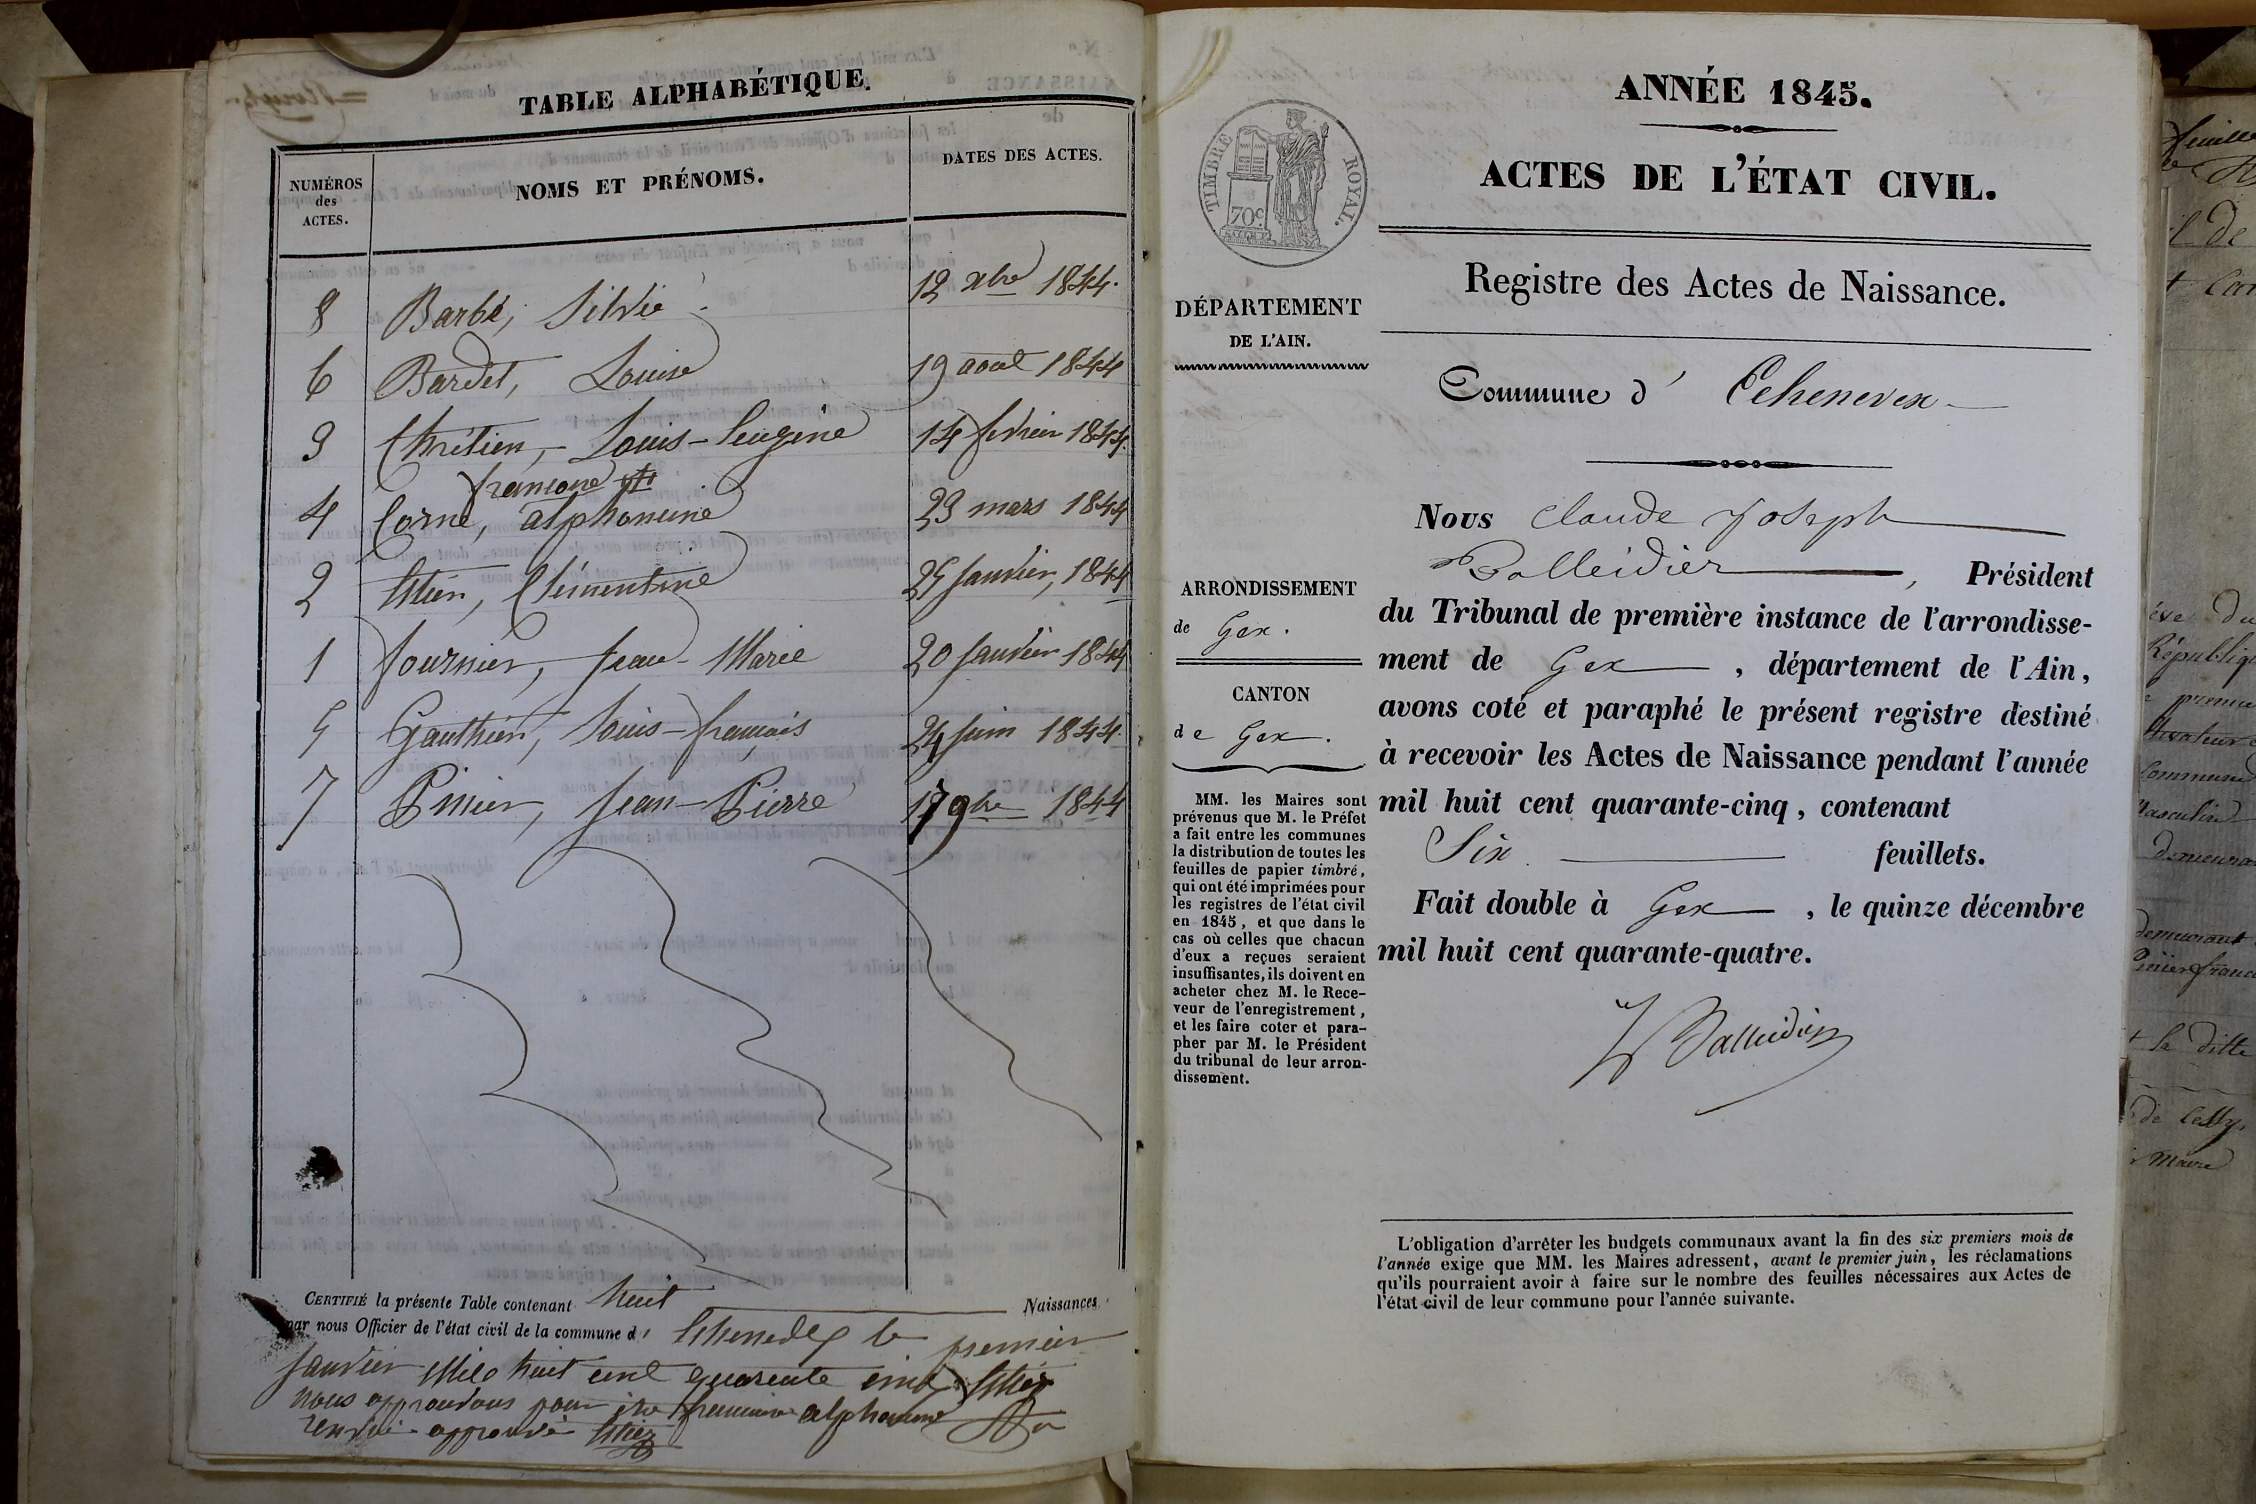 TABLE ALPHABÉTIQUE.
NUMÉROS des ACTES.
NOMS ET PRÉNOMS.
DATES DES ACTES.
8 Barbé, Silvie 12 xbre 1844.
6 Bardet, Louise 19 aout 1844
3 Chrétien, Louis-Eugène 14 février 1844.
françoise
4 Corne, alphonsine 23 mars 1844
2 Clémentine 25 Janvier, 1844
1 fournier, Jean-Marie 20 Janvier 1844
5 Gauthier, Louis-françois 24 Juin 1844.
7 Pinier, Jean-Pierre 17 9bre 1844
CERTIFIÉ la présente Table contenant huit Naissances
par nous Officier de l'état civil de la commune d' Echenevex le premier
Janvier Mil huit cent quarente cinq
nous approuvons pour alphonsine
renvoi approuvé
ANNÉE 1845.
ACTES DE L'ÉTAT CIVIL.
TIMBRE ROYAL.
70c
DÉPARTEMENT
DE L'AIN.
Registre des Actes de Naissance.
Commune d' Echenevex
ARRONDISSEMENT
de Gex.
CANTON
de Gex.
MM. les Maires sont
prévenus que M. le Préfet
a fait entre les communes
la distribution de toutes les
feuilles de papier timbré,
qui ont été imprimées pour
les registres de l'état civil
en 1845, et que dans le
cas où celles que chacun
d'eux a reçues seraient
insuffisantes, ils doivent en
acheter chez M. le Rece-
veur de l'enregistrement,
et les faire coter et para-
pher par M. le Président
du tribunal de leur arron-
dissement.
Nous Claude Joseph
Balleidier, Président
du Tribunal de première instance de l'arrondisse-
ment de Gex, département de l'Ain,
avons coté et paraphé le présent registre destiné
à recevoir les Actes de Naissance pendant l'année
mil huit cent quarante-cinq, contenant
Six feuillets.
Fait double à Gex, le quinze décembre
mil huit cent quarante-quatre.
Balleidier
L'obligation d'arrêter les budgets communaux avant la fin des six premiers mois de
l'année exige que MM. les Maires adressent, avant le premier juin, les réclamations
qu'ils pourraient avoir à faire sur le nombre des feuilles nécessaires aux Actes de
l'état civil de leur commune pour l'année suivante.